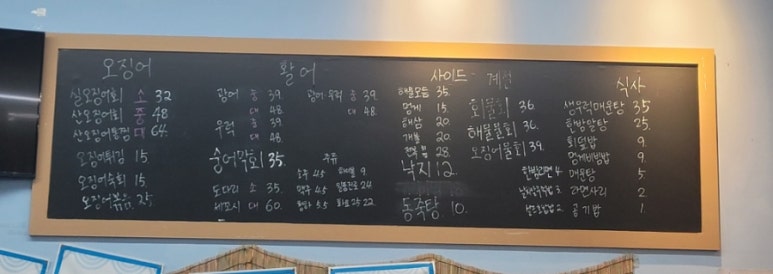 오징어
실오징어회 소 32
산오징어회 중 48
산오징어통찜 대 64
오징어튀김 15
오징어숙회 15
오징어볶음 25
활어
광어 중 39
대 48
우럭 중 39
대 48
숭어막회 35
도다리 소 35
세꼬시 대 60
광어+우럭 중 39
대 48
소주 4.5
맥주 4.5
5.5
사이드
해물모듬 35
멍게 15
해삼 20
개불 20
28
낙지 12
동죽탕 10
계절
회물회 36
해물물회 36
오징어물회 39
식사
생우럭매운탕 35
한방알탕 25
회덮밥 9
멍게비빔밥 9
매운탕 5
라면사리 2
공기밥 1